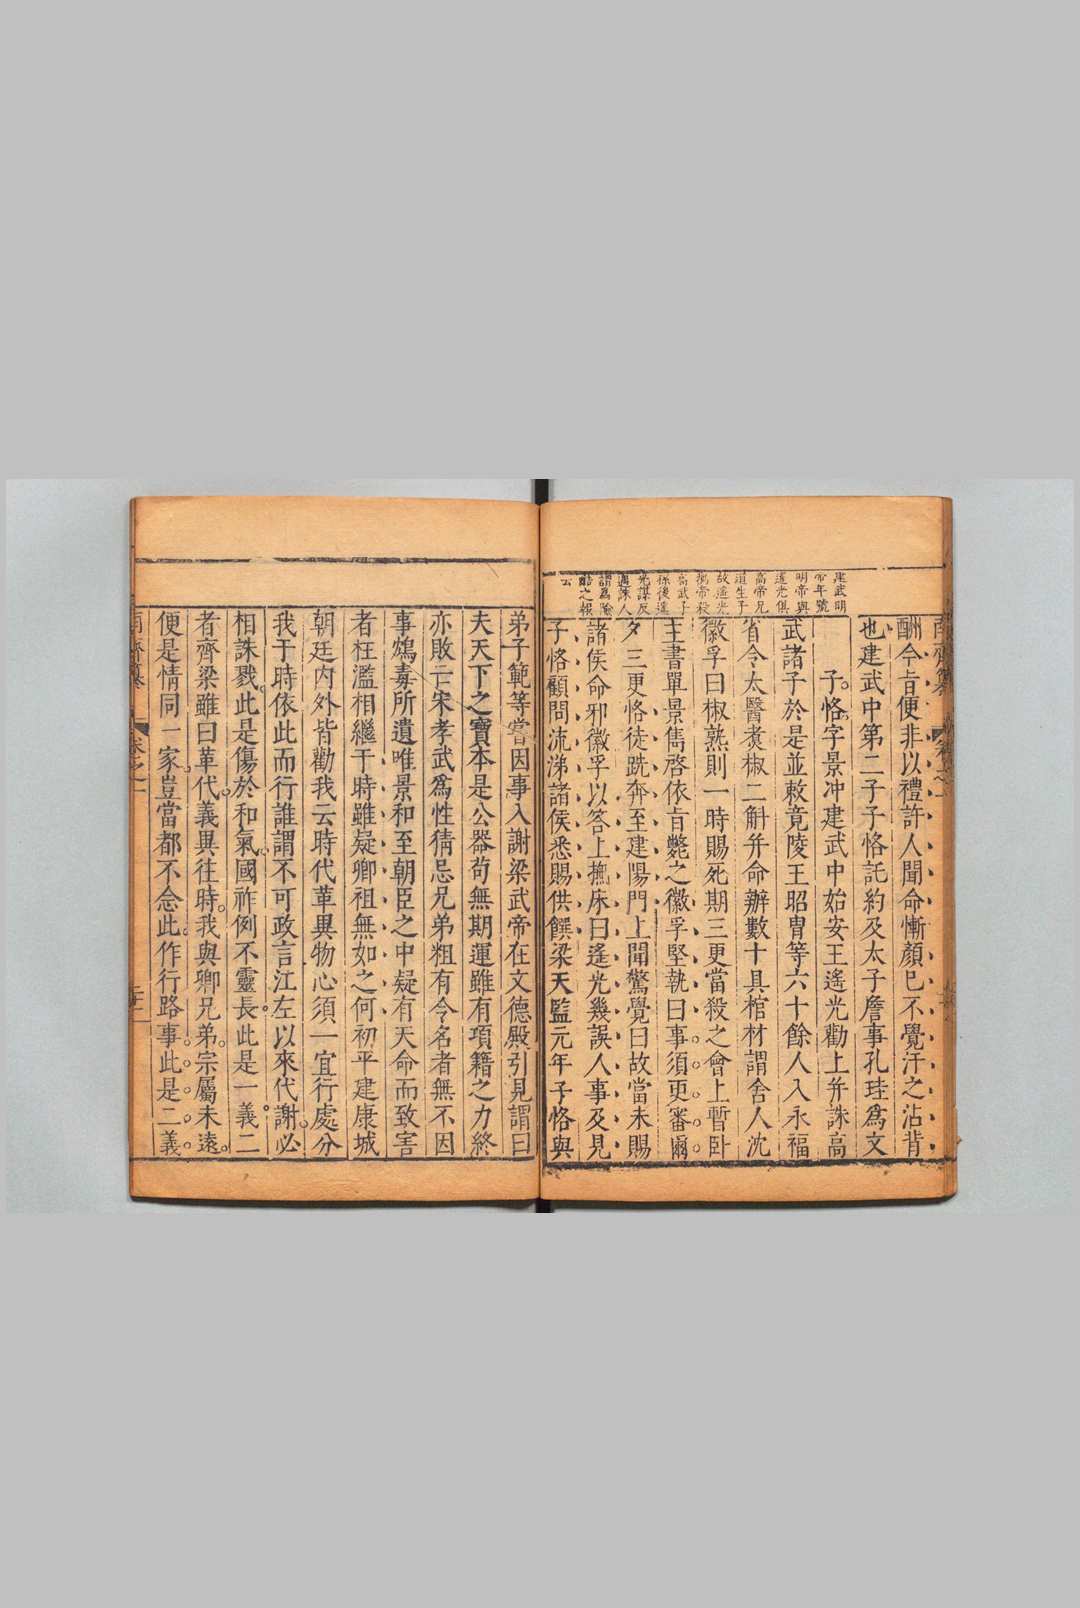 建武明
帝年號
明帝與
遙光俱
高帝兄
道生子
故遙光
勸帝殺
高武子
孫後遙
光謀反
遇誅人
謂爲隂
酷之報
云
酬今㫖便非以禮許人聞命慚顏巳不覺汗之沾背
也建武中第二子子恪託約及太子詹事孔珪爲文
子恪字景冲建武中始安王遙光勸上并誅高
武諸子於是並敕竟陵王昭胄等六十餘人入永福
省令太醫煮椒二斛并命辦數十具棺材謂舍人沈
徽孚曰椒熟則一時賜死期三更當殺之會上暫卧
主書單景雋啓依㫖斃之徽孚堅執曰事須更審爾
夕三更恪徒跣奔至建陽門上聞驚覺曰故當未賜
諸侯命邪徽孚以答上撫床曰遙光幾誤人事及見
子恪顧問流涕諸侯悉賜供饌梁天監元年子恪與
弟子範等嘗因事入謝梁武帝在文德殿引見謂曰
夫天下之寶本是公器苟無期運雖有項籍之力終
亦敗亡宋孝武爲性猜忌兄弟粗有令名者無不因
事鴆毒所遺唯景和至朝臣之中疑有天命而致害
者枉濫相繼于時雖疑卿祖無如之何初平建康城
朝廷内外皆勸我云時代革異物心須一宜行處分
我于時依此而行誰謂不可政言江左以來代謝必
相誅戮此是傷於和氣國祚例不靈長此是一義二
者齊梁雖曰革代義異往時我與卿兄弟宗屬未遠
便是情同一家豈當都不念此作行路事此是二義